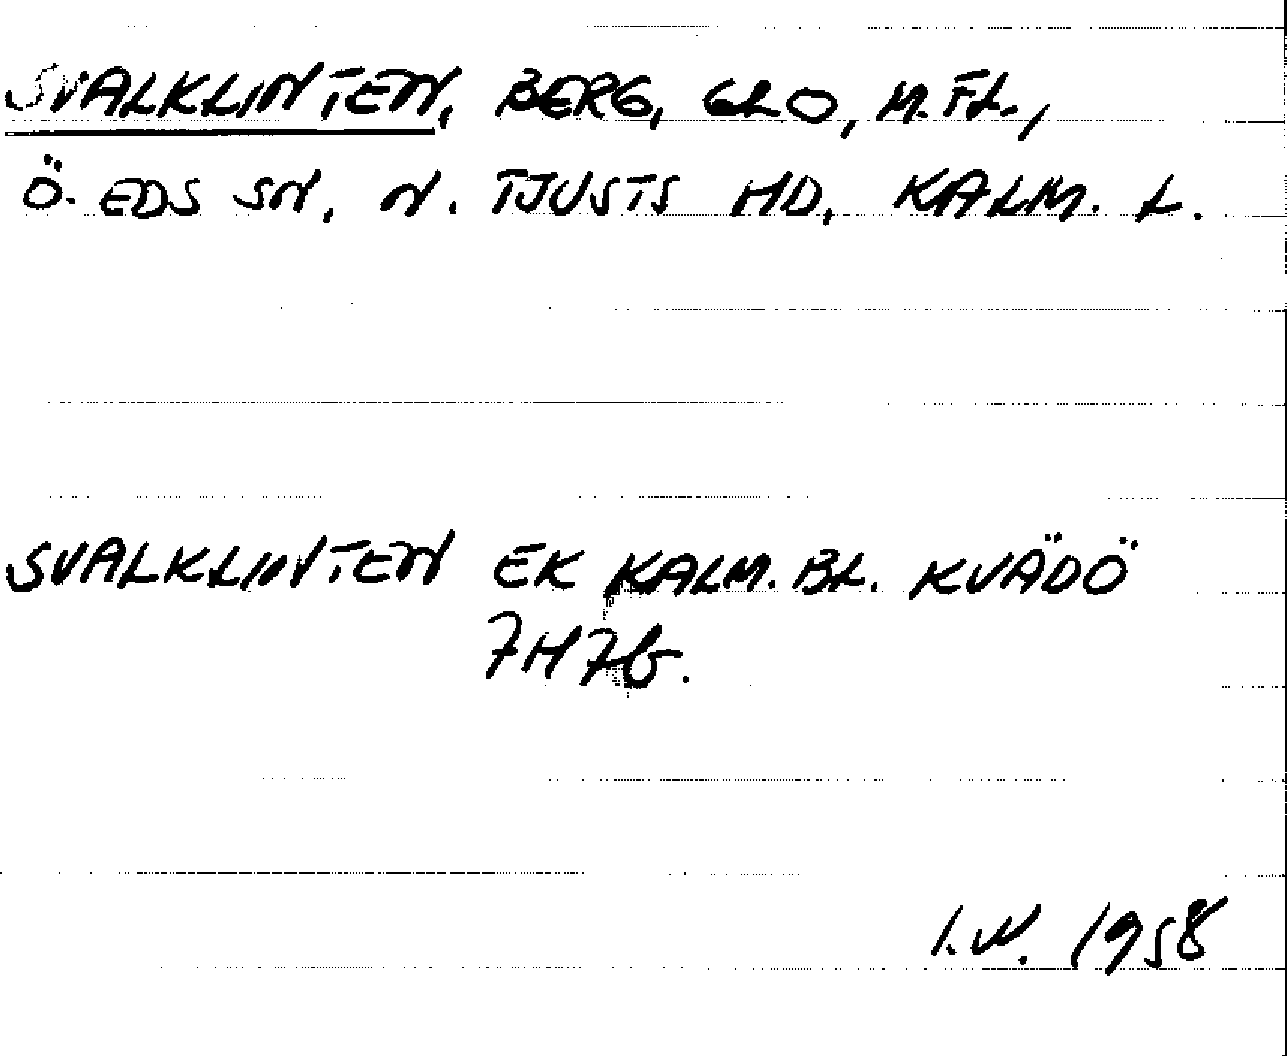 SVALKLINTEN, BERG, GLO, M.FL.,
Ö. EDS SN, N. TJUSTS HD, KALM. L.
SVALKLINTEN EK KALM. BL. KVÄDÖ
7H7b.
I.W. 1958